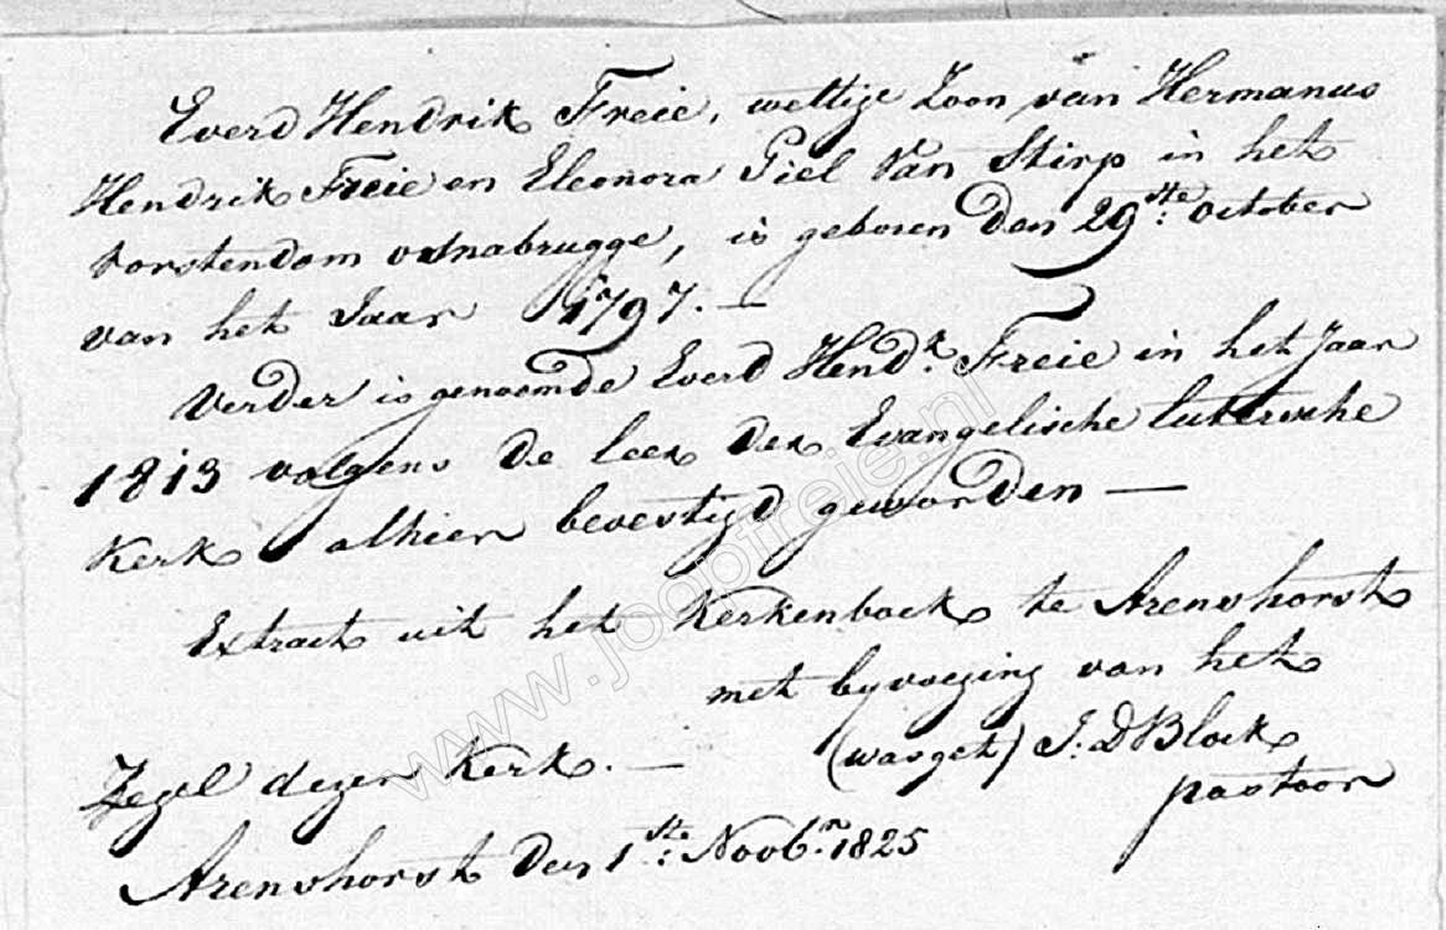 Everd Hendrik Freie, wettige Zoon van Hermanus
Hendrik Freie en Eleonora Piel van Stirp in het
vorstendom osnabrugge, is geboren den 29ste october
van het Jaar 1797. —
Verder is genoemde Everd Hendk. Freie in het Jaar
1813 volgens de leer der Evangelische luttersche
Kerk alhier bevestigd geworden —
Extract uit het Kerkenboek te Arenshorst
met byvoeging van het
Zegel dezer Kerk. —
(wasget) J: D Block
pastoor
Arenshorst den 1ste: Novbr. 1825
www.joopfreie.nl